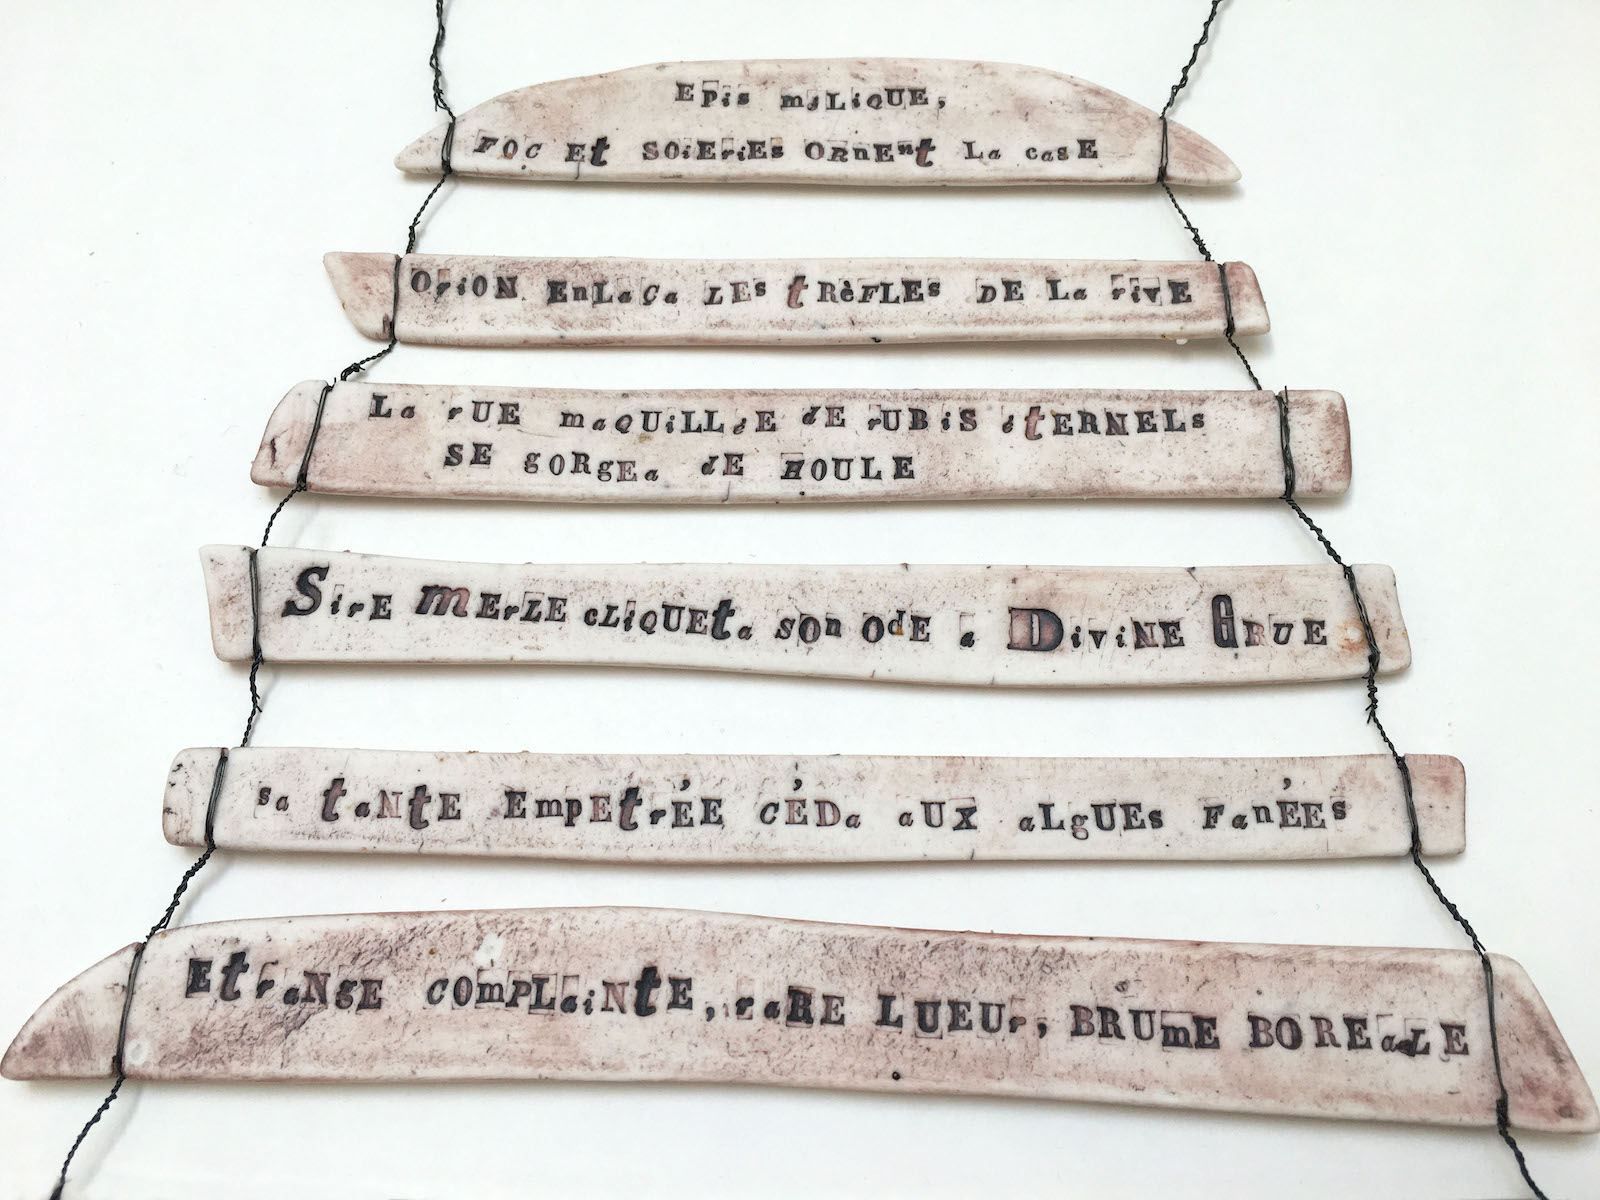 Epis méLiQUE,
FOC Et SOiEriEs ORnEnt La casE
OriON EnLaça LEs tRèFLEs DE La rivE
La rUE maQUiLLéE dE rUBiS éTERNELs
SE gORgEa dE HOULE
SirE mErLE cLiQUEta sOn OdE a DiviNE GRUE
sa taNtE EmpEtrÉE CÉDa aUX aLgUEs FanÉEs
EtraNgE COmPLaiNtE, raRE LUEUr, BRUmE BOREaLE